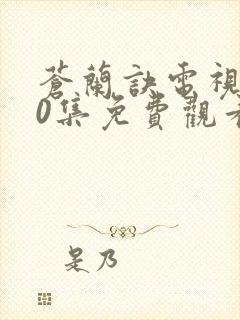 蒼蘭訣電視
0集免費觀看
是乃